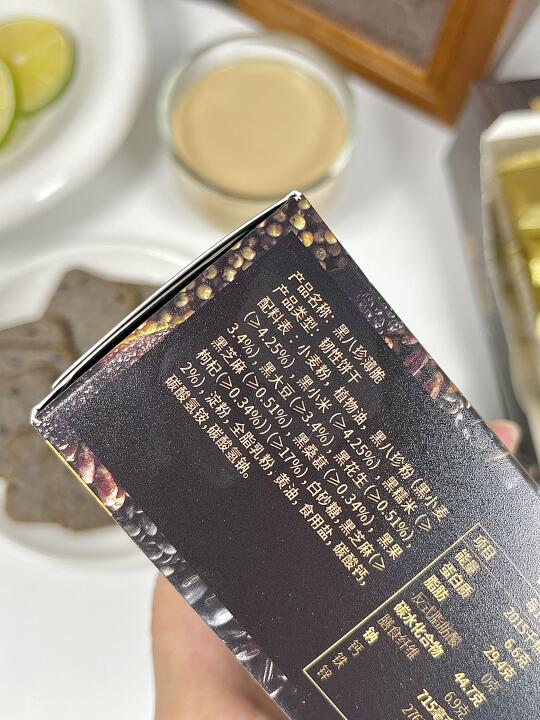 产品名称：黑八珍薄脆
产品类型：韧性饼干
配料表：小麦粉，植物油，黑八珍粉(黑小麦
(≥4.25%)，黑小米(≥4.25%)，黑糯米(≥
3.4%)，黑大豆(≥3.4%)，黑花生(≥0.51%)，
黑芝麻(≥0.51%)，黑桑葚(≥0.34%)，黑果
枸杞(≥0.34%))(≥17%)，白砂糖，黑芝麻(≥
2%)，淀粉，全脂乳粉，黄油，食用盐，碳酸钙，
碳酸氢铵，碳酸氢钠。
项目
能量
蛋白质 6.6克
脂肪 29.4克
反式脂肪酸 0克
碳水化合物 44.7克
膳食纤维 6.9克
钠
钙
铁
锌